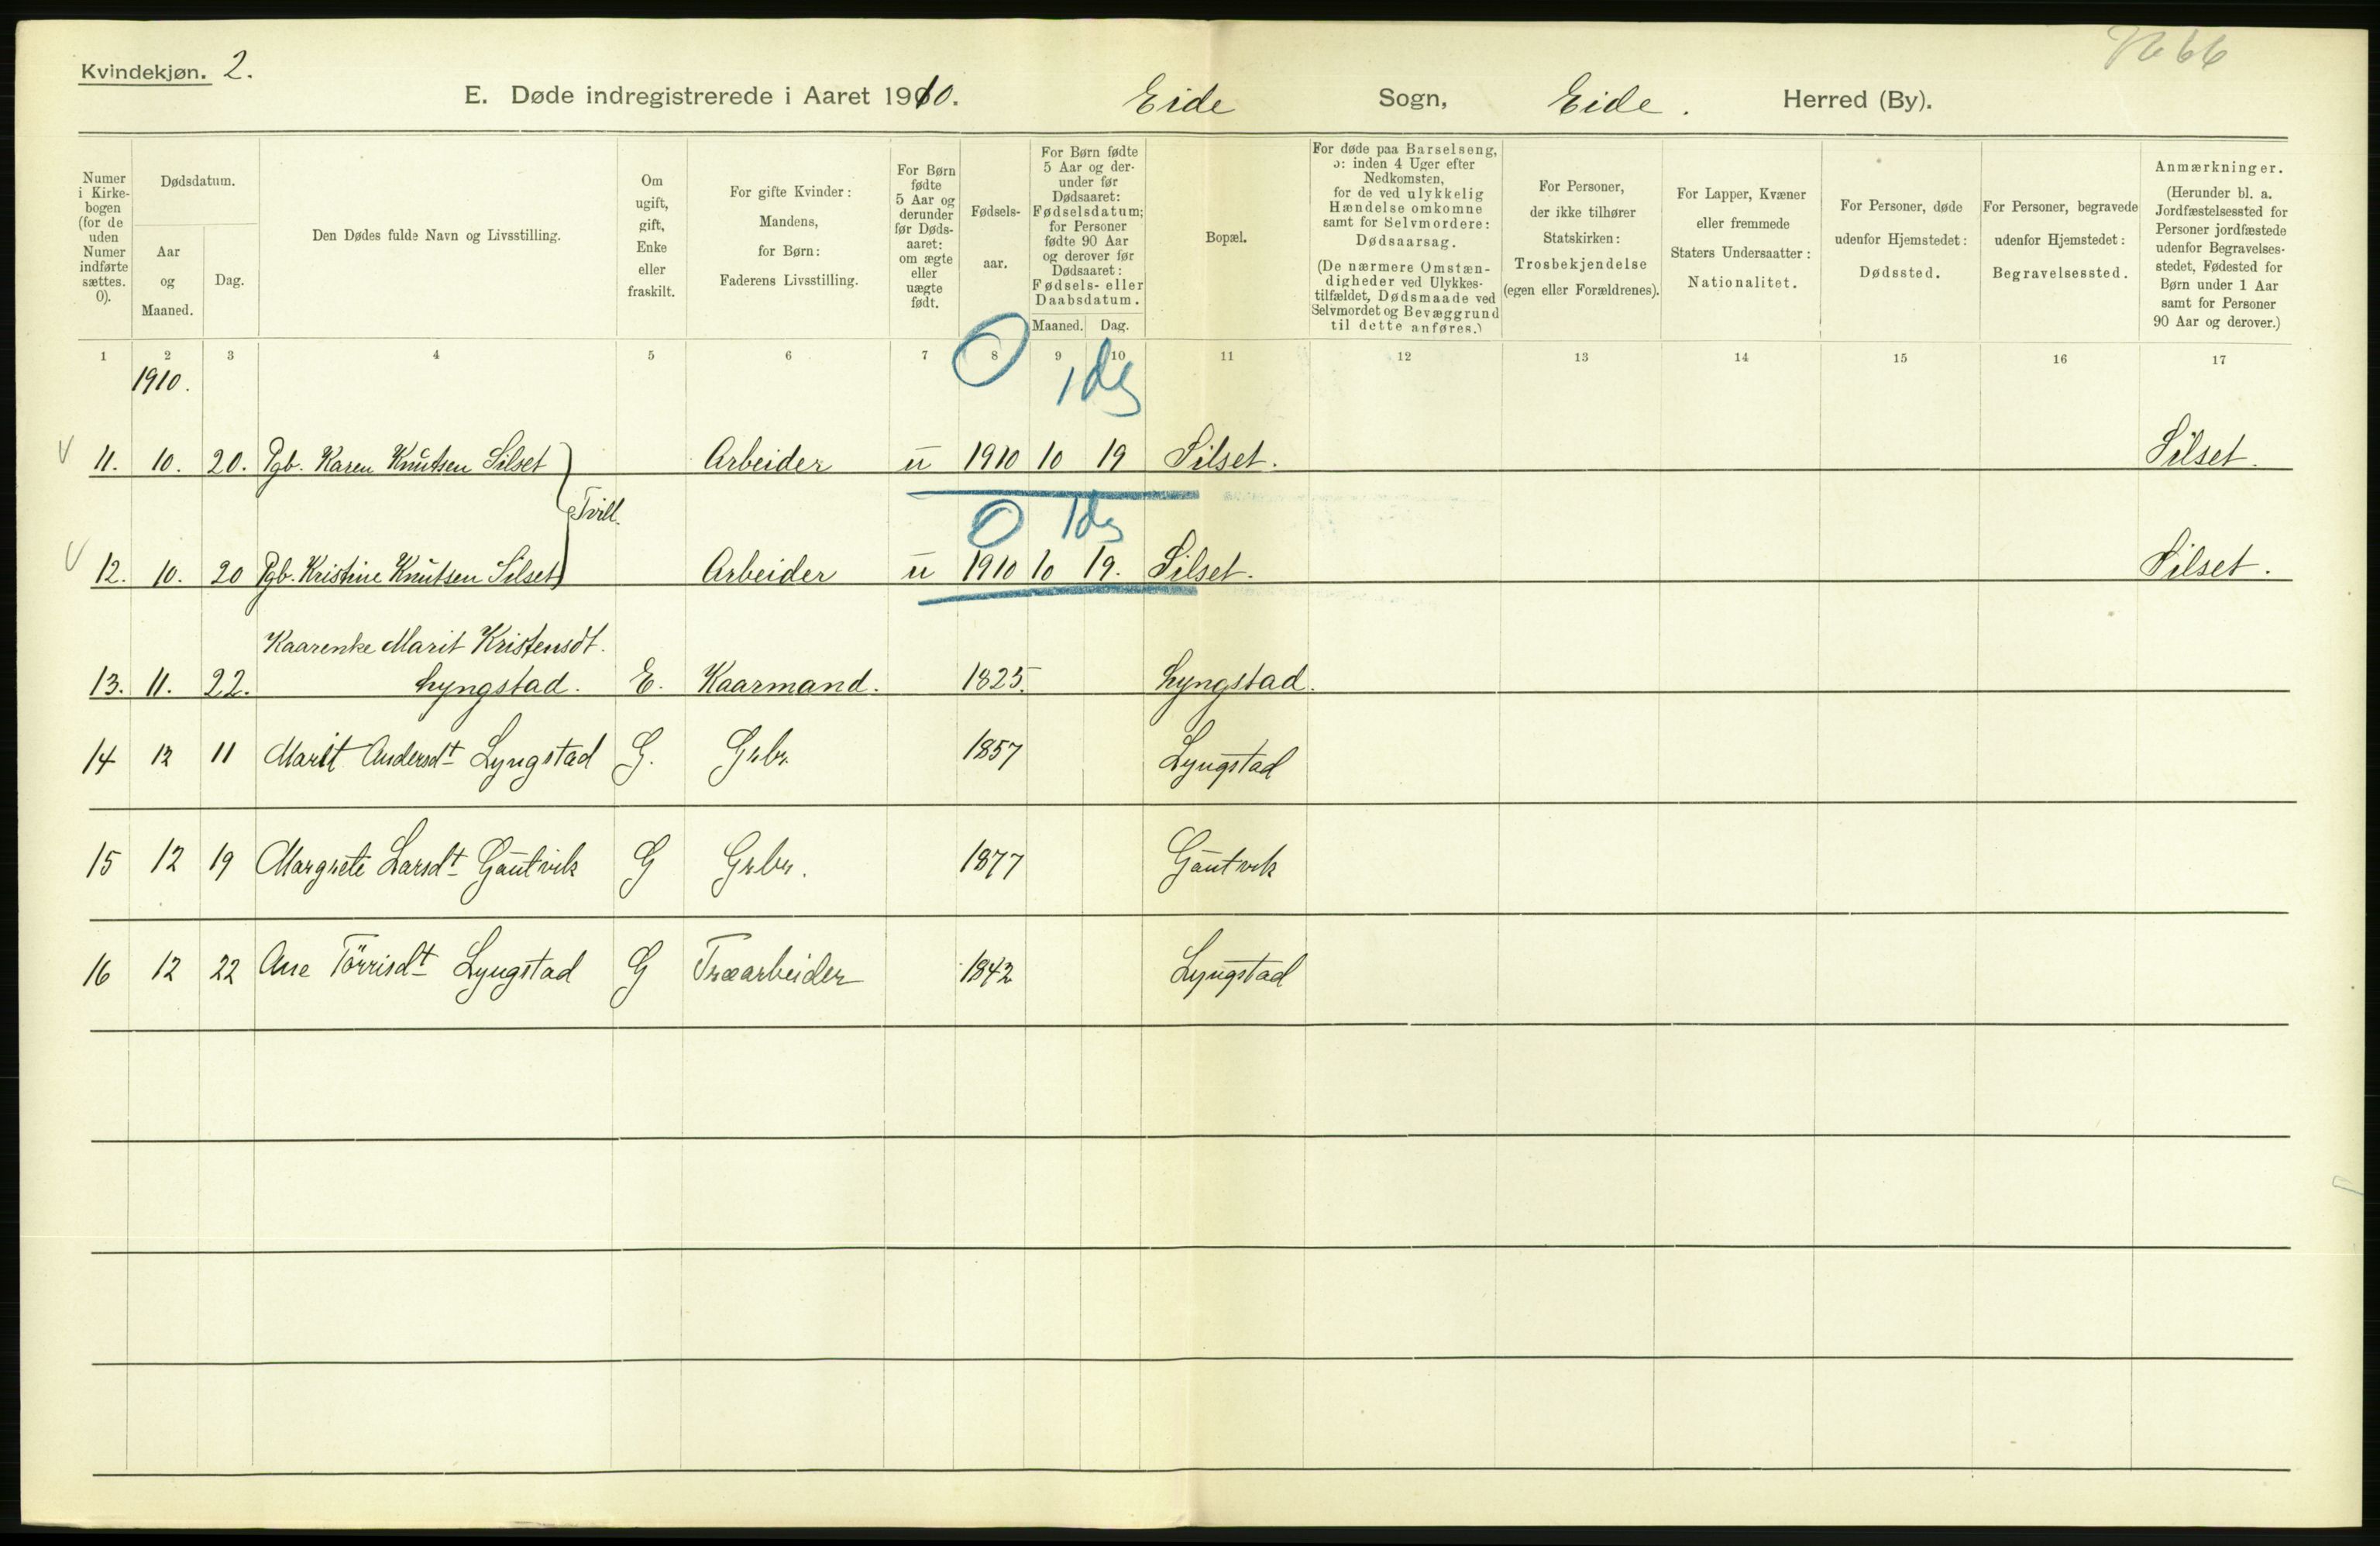 Kvindekjøn. 2.
E. Døde indregistrerede i Aaret 1910. Eide Sogn, Eide. Herred (By).
Numer i Kirkebogen (for de uden Numer indførte sættes. 0).
Dødsdatum.
Aar og Maaned.
Dag.
Den Dødes fulde Navn og Livsstilling.
Om ugift, gift, Enke eller fraskilt.
For gifte Kvinder: Mandens, for Børn: Faderens Livsstilling.
For Børn fødte 5 Aar og derunder før Dødsaaret: om ægte eller uægte født.
Fødselsaar.
For Børn fødte 5 Aar og derunder før Dødsaaret: Fødselsdatum; for Personer fødte 90 Aar og derover før Dødsaaret: Fødsels- eller Daabsdatum.
Maaned. Dag.
Bopæl.
For døde paa Barselseng, ɔ: inden 4 Uger efter Nedkomsten, for de ved ulykkelig Hændelse omkomne samt for Selvmordere: Dødsaarsag. (De nærmere Omstændigheder ved Ulykkestilfældet, Dødsmaade ved Selvmordet og Bevæggrund til dette anføres.)
For Personer, der ikke tilhører Statskirken: Trosbekjendelse (egen eller Forældrenes).
For Lapper, Kvæner eller fremmede Staters Undersaatter: Nationalitet.
For Personer, døde udenfor Hjemstedet: Dødssted.
For Personer, begravede udenfor Hjemstedet: Begravelsessted.
Anmærkninger. (Herunder bl. a. Jordfæstelsessted for Personer jordfæstede udenfor Begravelsesstedet, Fødested for Børn under 1 Aar samt for Personer 90 Aar og derover.)
1 2 3 4 5 6 7 8 9 10 11 12 13 14 15 16 17
1910. 0 1 dg
11. 10. 20. Pgb. Karen Knutsen Silset Arbeider u 1910 10 19 Silset. Silset.
Tvill. 0 1 dg
12. 10. 20 Pgb. Kristine Knutsen Silset Arbeider u 1910 10 19. Silset. Silset.
Kaarenke Marit Kristensdt.
13. 11. 22. Lyngstad. E. Kaarmand. 1825. Lyngstad.
14 12 11 Marit Andersdt Lyngstad G. Grbr. 1857 Lyngstad
15 12 19 Margrete Larsdt Gautvik G Grbr. 1877 Gautvik
16 12 22 Ane Törrisdt Lyngstad G Træarbeider 1842 Lyngstad